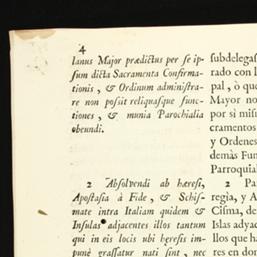 4
lanus Major prædictus per se ip-
sum dicta Sacramenta Confirma-
tionis, & Ordinum administra-
re non possit reliquasque func-
tiones, & munia Parochialia
obeundi.
2 Absolvendi ab hæresi,
Apostasia à Fide, & Schis-
mate intra Italiam quidem &
Insulas adjacentes illos tantum
qui in eis locis ubi hæreses im-
punè grassatur nati sint, nec
subdelegas
rado con l
pal, ò que
Mayor no
por si mism
cramentos
y Ordenes
demàs Fun
Parroquial
2 Par
regia, y A
Cisma, de
Islas adyac
llos que ha
res en dond